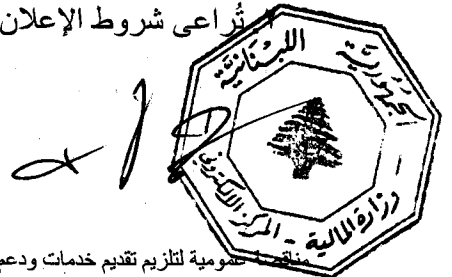 تُراعى شروط الإعلان
الجمهورية اللبنانية
وزارة المالية - المركز الالكتروني
مناقصة عمومية لتلزيم تقديم خدمات ودعم